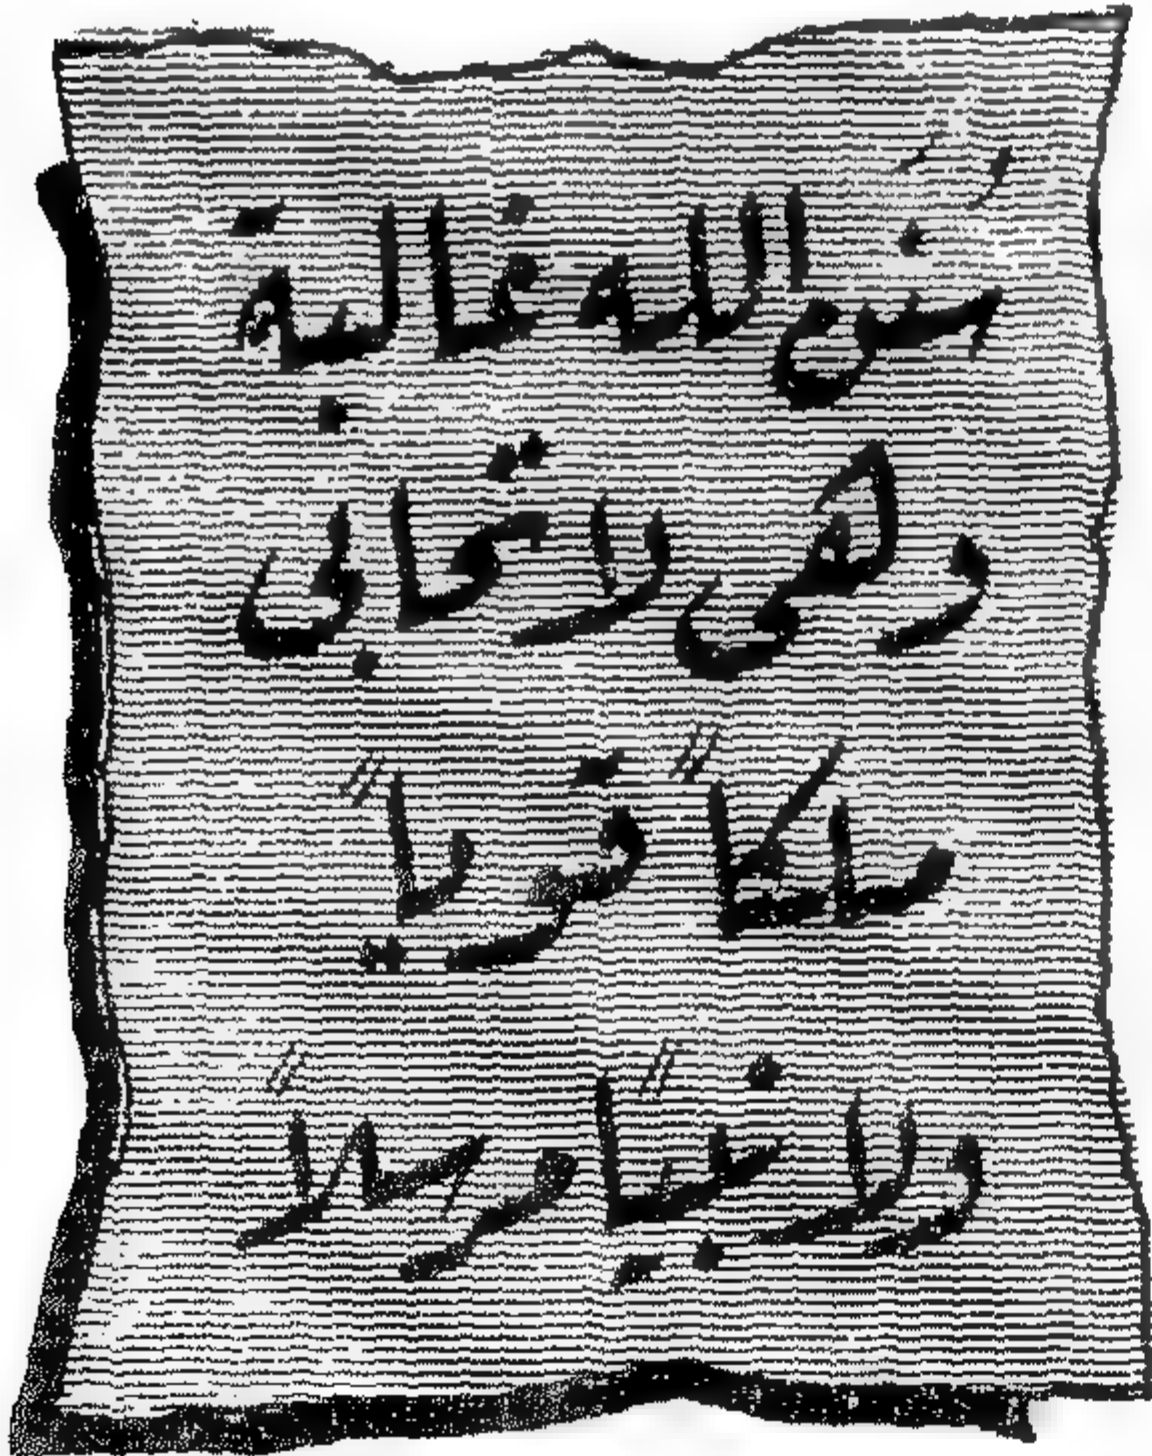 سُنن الله غالبة
وهى لا تحابى
ملكاً قوياً
ولا نبياً مرسلاً